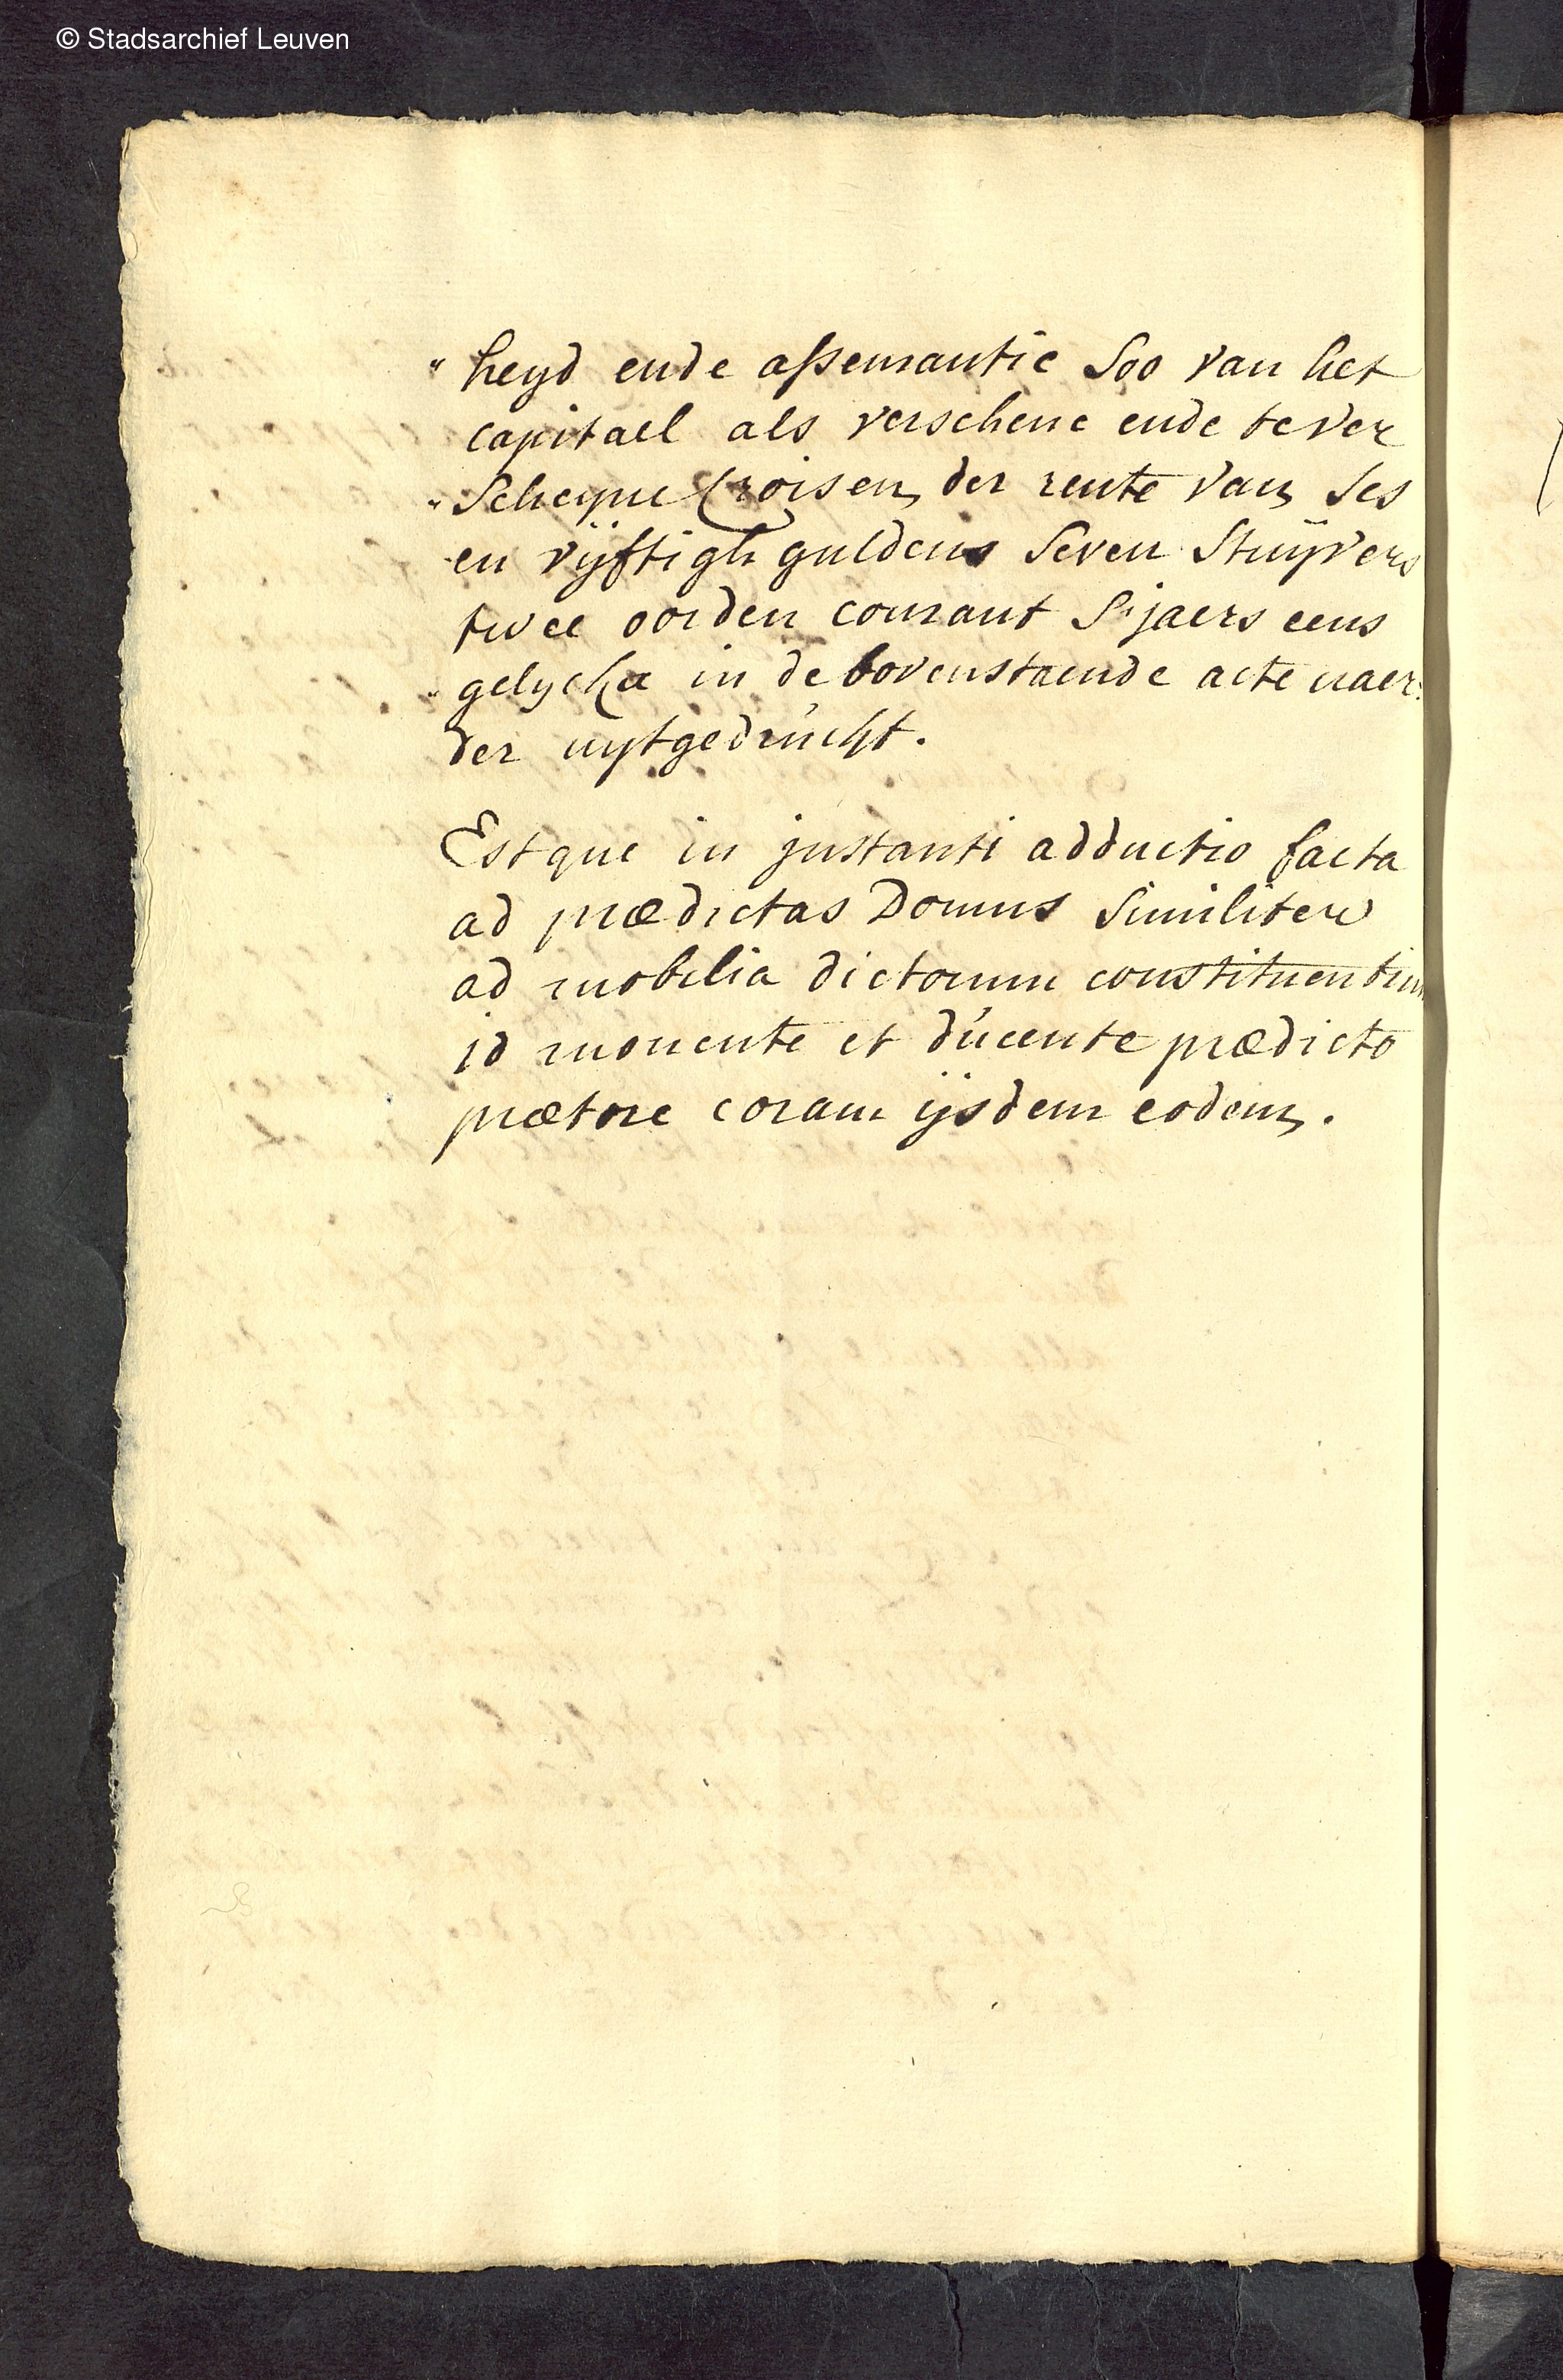 © Stadsarchief Leuven
" heyd ende asseurantie soo van het
capitael als verschene ende te ver
" scheyne croisen, der rente van ses
en vyftigh guldens seven stuyvers
twee oorden courant s'jaers eens
" gelyckx in de bovenstaende acte naer:
der uytgedruckt.
Estque in instanti adductio facta
ad prædictas Domus similiter
ad mobilia dictorum constituentium
id monente et ducente prædicto
prætore coram ijsdem eodem.